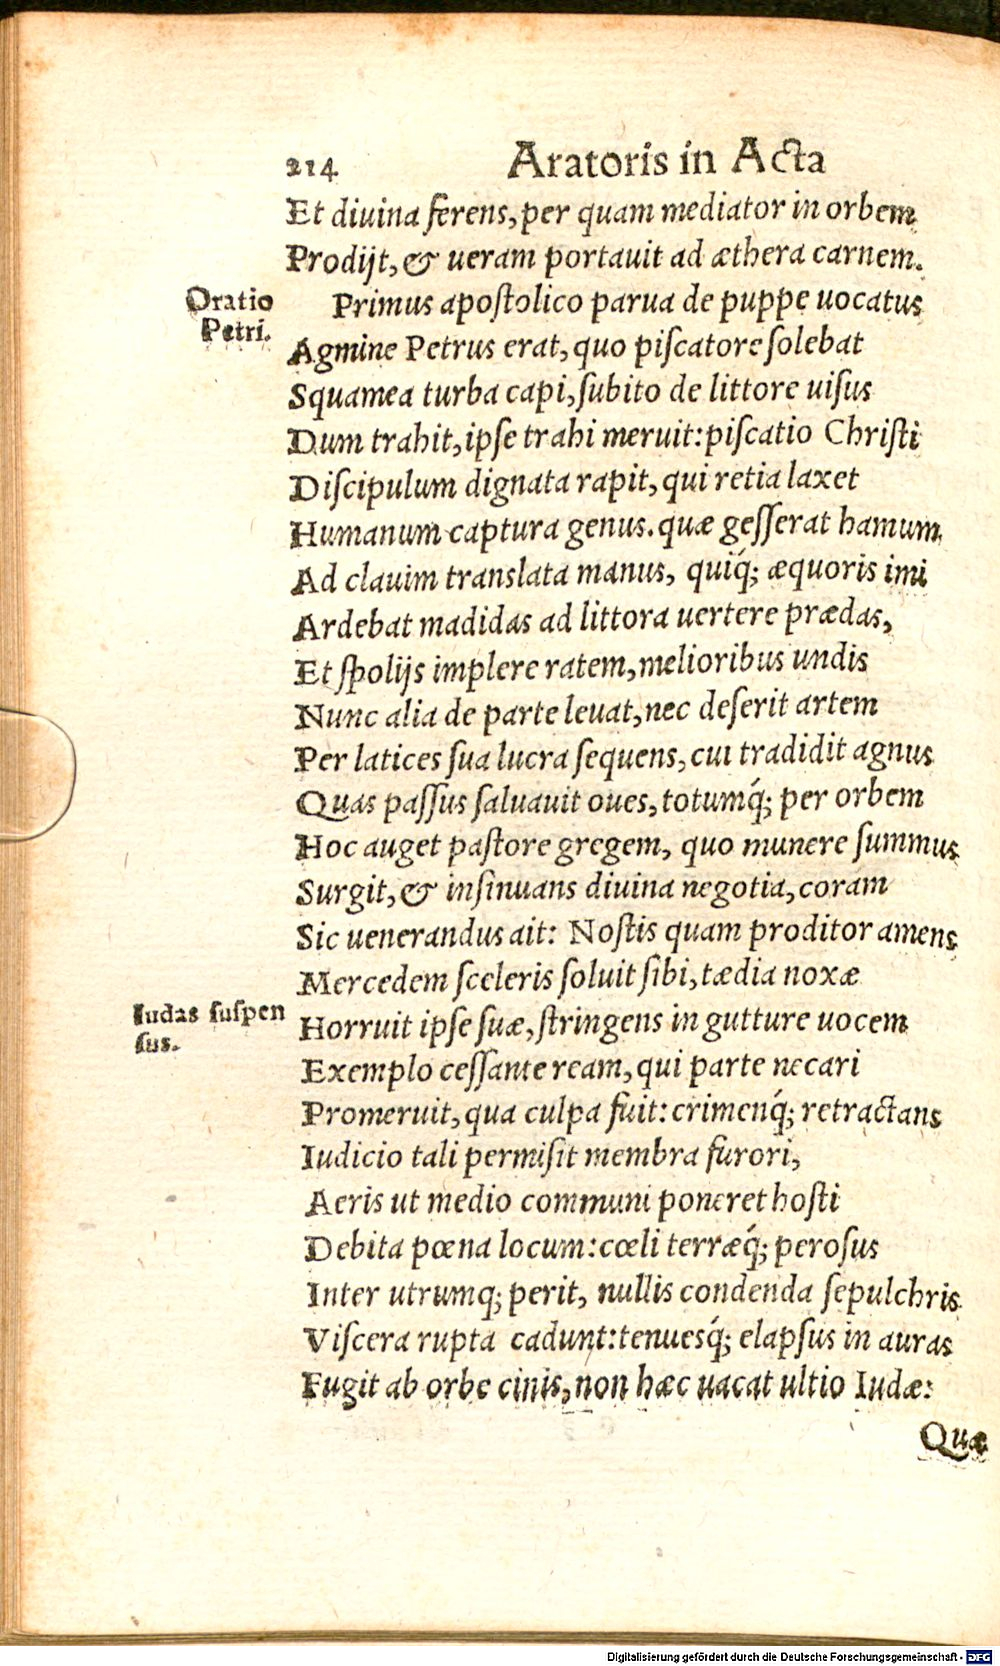 214 Aratoris in Acta
Et diuina ferens, per quam mediator in orbem
Prodijt, & ueram portauit ad æthera carnem.
Oratio
Petri.
Primus apostolico parua de puppe uocatus
Agmine Petrus erat, quo piscatore solebat
Squamea turba capi, subito de littore uisus
Dum trahit, ipse trahi meruit: piscatio Christi
Discipulum dignata rapit, qui retia laxet
Humanum captura genus. quæ gesserat hamum
Ad clauim translata manus, quiq́; æquoris imi
Ardebat madidas ad littora uertere prædas,
Et spolijs implere ratem, melioribus undis
Nunc alia de parte leuat, nec deserit artem
Per latices sua lucra sequens, cui tradidit agnus
Quas passus saluauit oues, totumq́; per orbem
Hoc auget pastore gregem, quo munere summus
Surgit, & insinuans diuina negotia, coram
Sic uenerandus ait: Nostis quam proditor amens
Mercedem sceleris soluit sibi, tædia noxæ
Iudas suspen
sus.
Horruit ipse suæ, stringens in gutture uocem
Exemplo cessante ream, qui parte necari
Promeruit, qua culpa fuit: crimenq́; retractans
Iudicio tali permisit membra furori,
Aeris ut medio communi poneret hosti
Debita pœna locum: cœli terræq́; perosus
Inter utrumq; perit, nullis condenda sepulchris
Viscera rupta cadunt: tenuesq́; elapsus in auras
Fugit ab orbe cinis, non hæc uacat ultio Iudæ:
Quæ
Digitalisierung gefördert durch die Deutsche Forschungsgemeinschaft - DFG